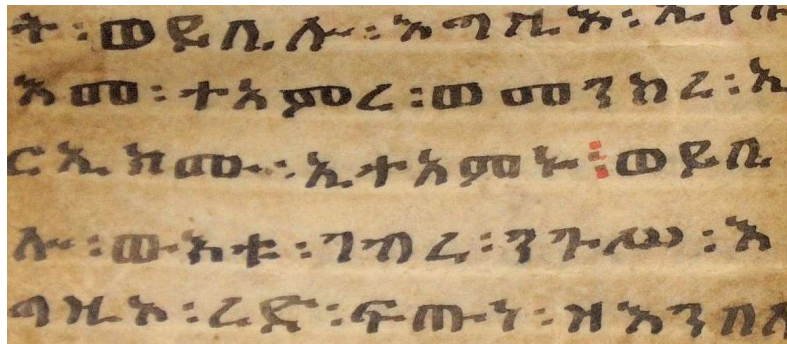 ት፡ወይቤሎ፡እግዚእ፡ኢየሱ
እመ፡ተአምረ፡ወመንክረ፡ኢ
ርኢክሙ፡ኢተአምኑ።ወይቤ
ሎ፡ውእቱ፡ገብረ፡ንጉሥ፡እ
ግዚኦ፡ረድ፡ፍጡነ፡ዘእንበለ